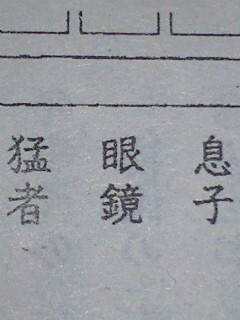 息子
眼鏡
猛者